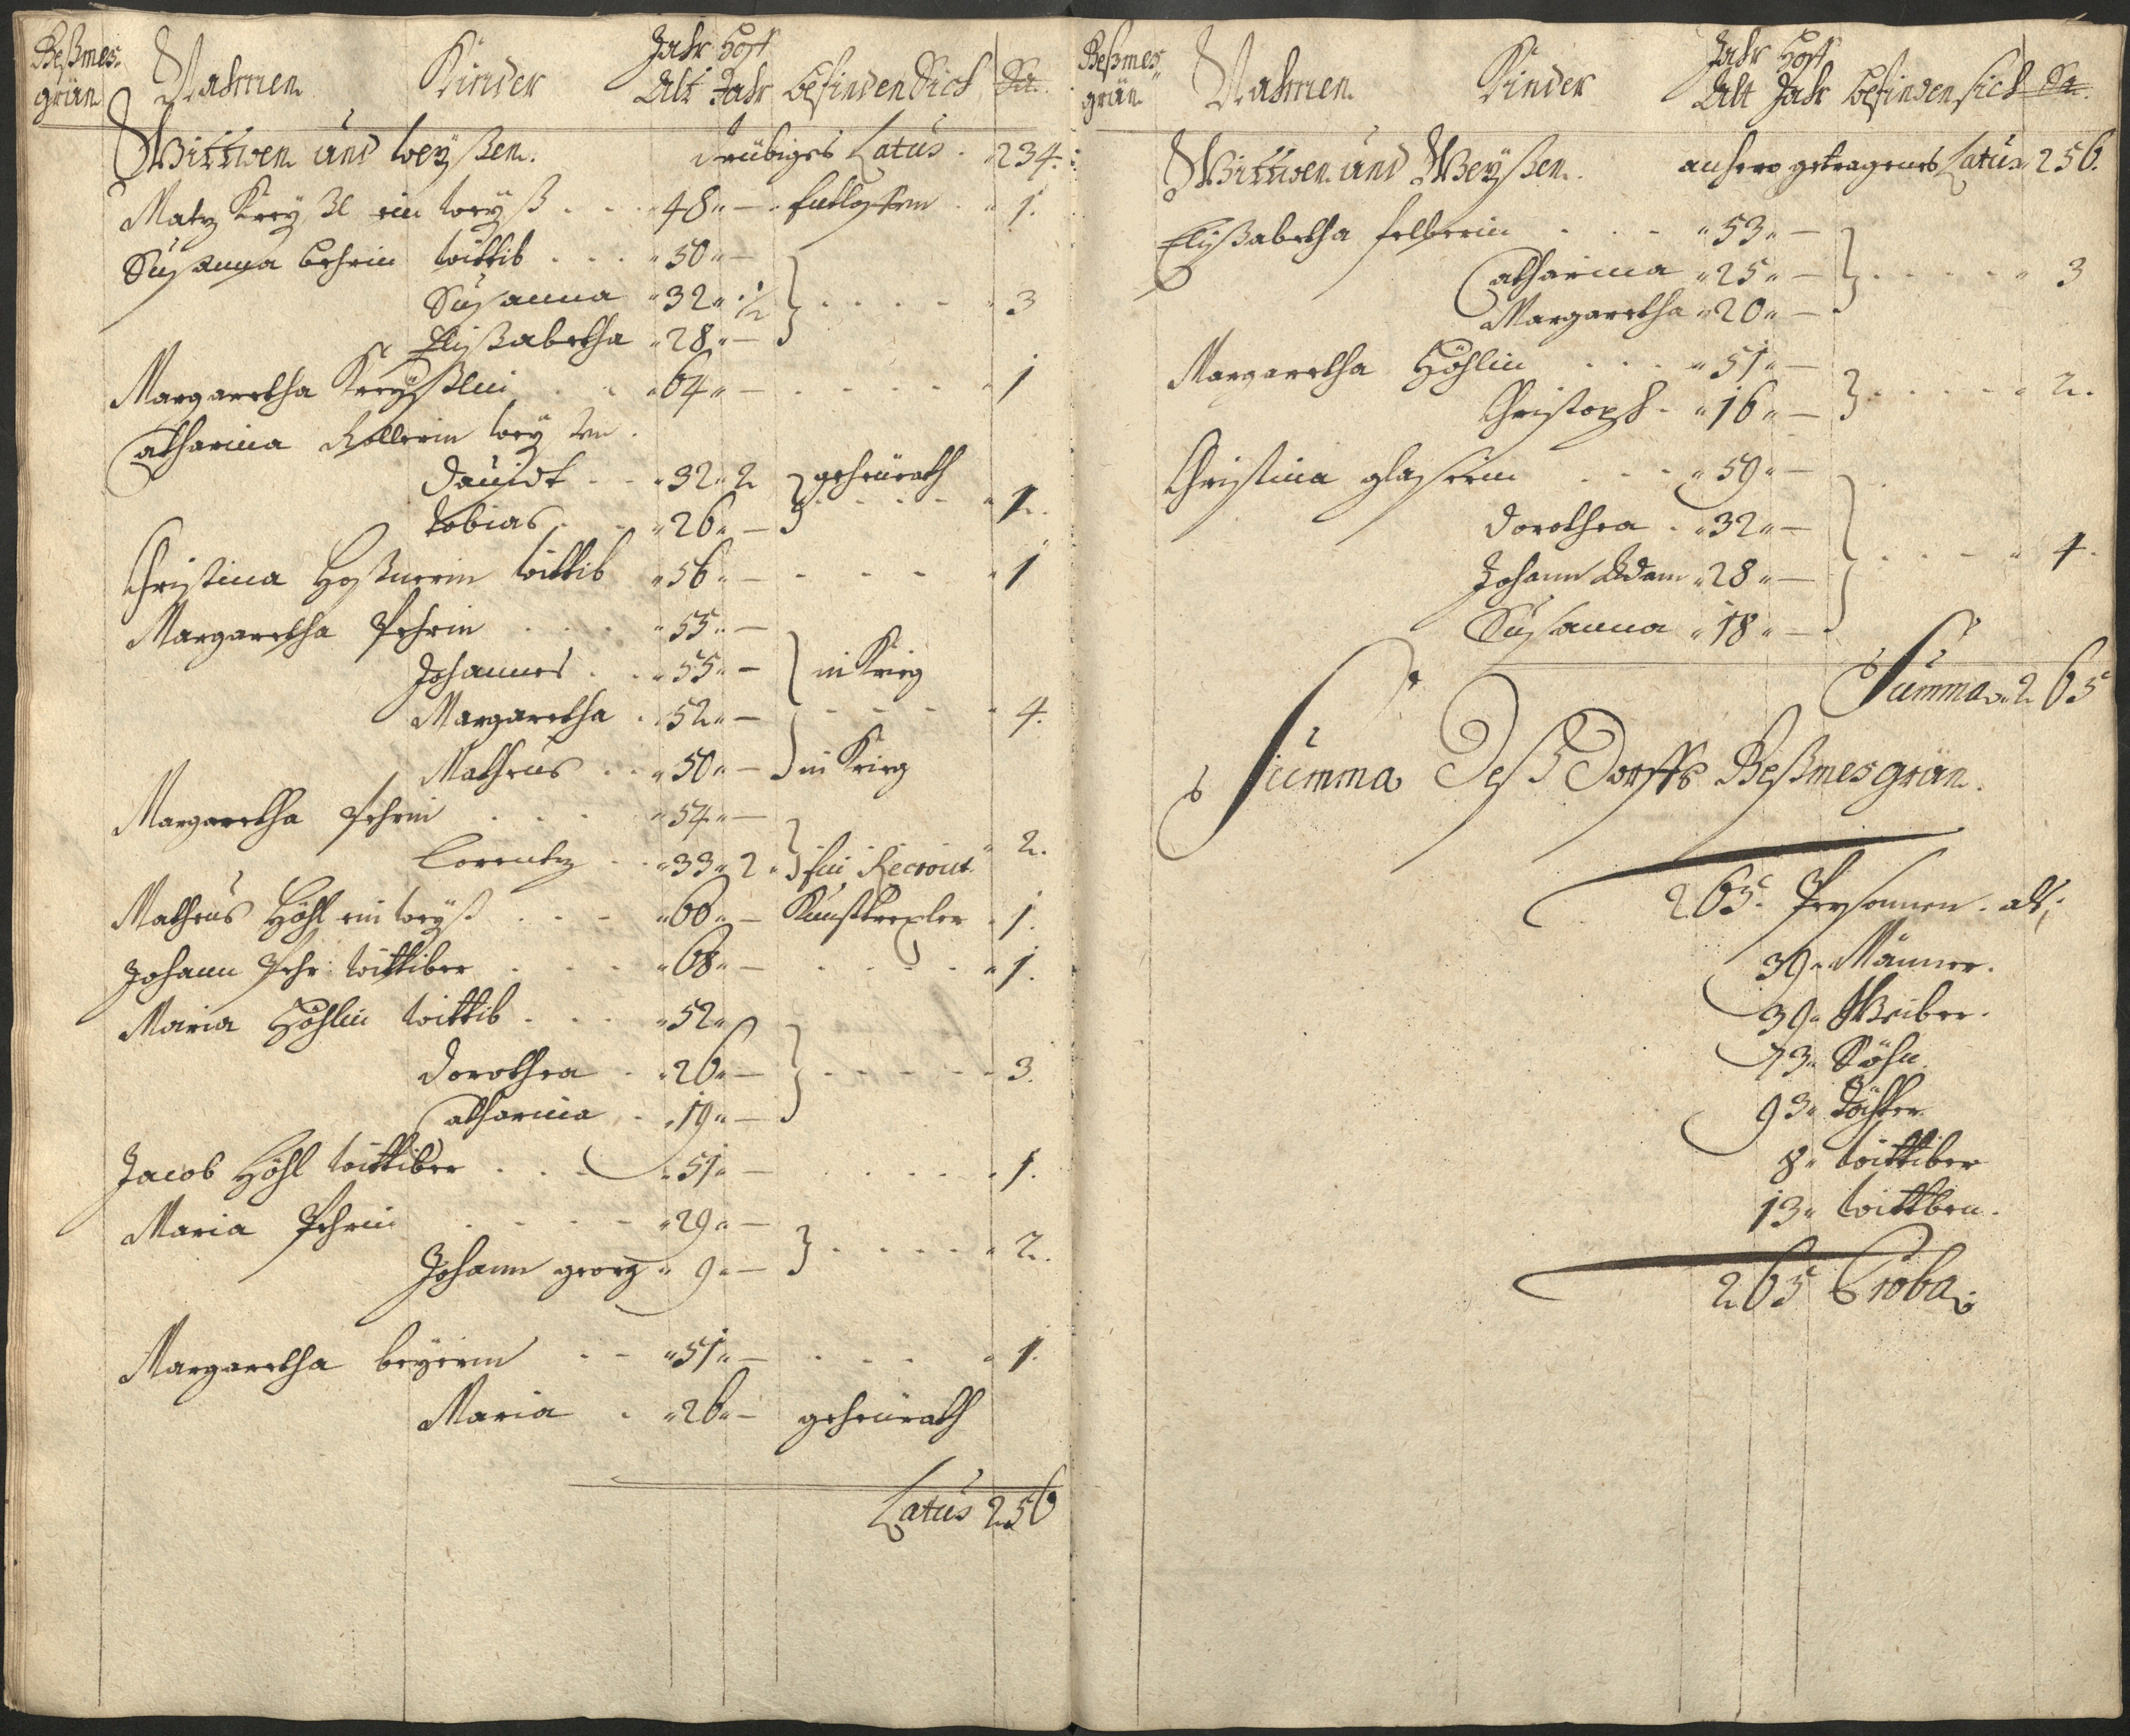 Beßmes-
grün
Nahmen Kinder Jahr Alt Hoff Jahr befinden Sich Sa.
Wittwen und weyßen. drübiges Latus. 234.
Matz Krey ßl ein weyß . . . 48 — 1.
Susanna behrin wittib . . . 50 —
Susanna 32 ½ } . . . . 3
Elißabetha 28 —
Margaretha Kreyßlin . . 64 — . . . . 1
Catharina Rollerin wey
Dauidt . . 32 2 } geheürath
Tobias . . 26 — 1.
Christina Hoßnerin wittib 56 — . . . 1
Margaretha Pehrin . . . 55 —
Johannes . . 55 — } in Krieg
Margaretha . 52 — . . . 4.
Matheus . . 50 — in Krieg
Margaretha Pehrin . . . 54 —
Lorentz . . 33 2 } ein Recrout 2.
Matheus Höhl ein weyß . . . 60 — 1.
Johann Pehr wittiber . . . 68 — . . . . 1.
Maria Höhlin wittib . . . 52
Dorothea . 26 — } . . . . 3.
Catharina . 19 —
Jacob Höhl wittiber . . . 51 — . . . . 1.
Maria Pehrin . . . . 29 —
Johann georg 9 — } . . . . 2.
Margaretha beyerin . . 51 — . . . 1.
Maria . 26 — geheürath
Latus 256
Beßmes-
grün
Nahmen Kinder Jahr Alt Hoff Jahr befinden sich Sa.
Wittwen und Weyßen. anhero getragenes Latus 256.
Elyßabetha felberin . . . 53 —
Catharina 25 — } . . . . 3
Margaretha 20 —
Margaretha Höhlin . . . 51 —
Christoph . 16 — } . . . . 2.
Christina glaßerin . . . 59 —
Dorothea . 32 —
Johann Adam 28 — } . . . 4.
Susanna 18 —
Summa 265
Summa Deß Dorffs Beßmesgrün.
265 Persohnen. alß,
39 Männer.
39 Weiber.
73 Söhn
93 Töchter
8 wittiber
13 wittben.
265 Proba